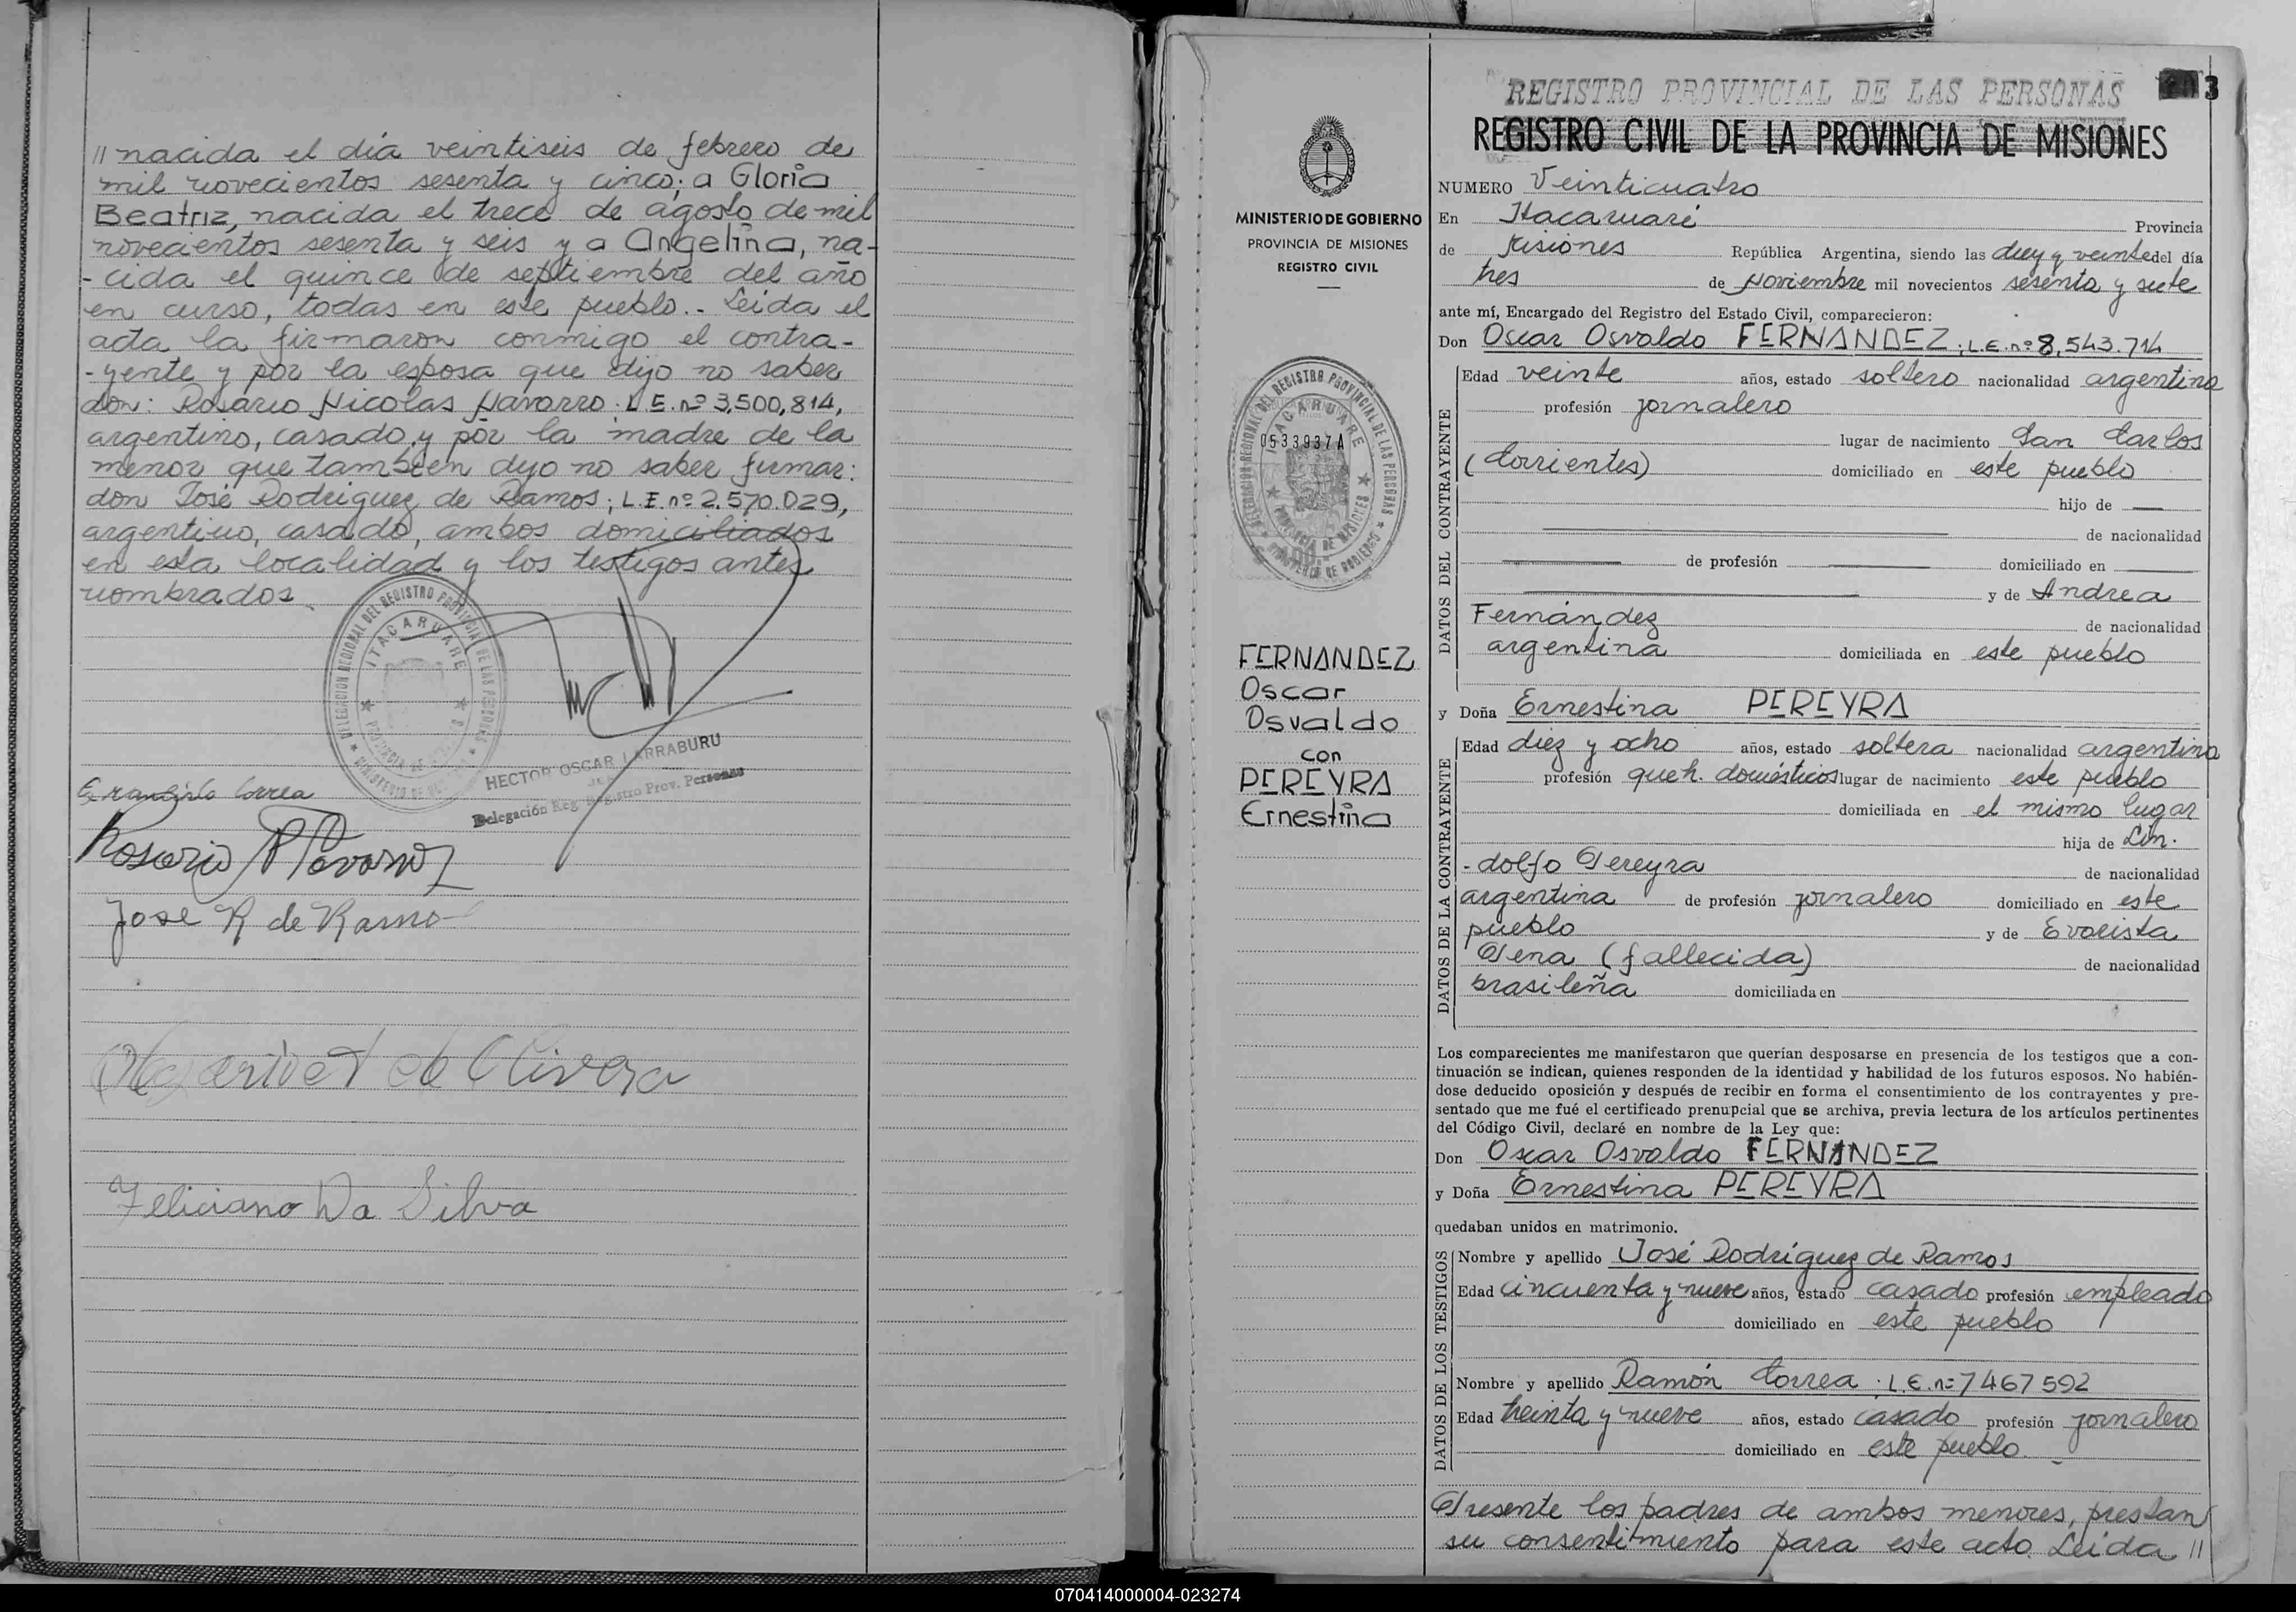 // nacida el día veintiseis de febrero de
mil novecientos sesenta y cinco; a Gloria
Beatriz, nacida el trece de agosto de mil
novecientos sesenta y seis y a Angelina, na-
-cida el quince de septiembre del año
en curso, todas en este pueblo.- Leida el
acta la firmaron conmigo el contra-
-yente y por la esposa que dijo no saber
don: Rosario Nicolas Navarro: L.E. nº 3,500,814,
argentino, casado y por la madre de la
menor que tambien dijo no saber firmar:
don José Rodriguez de Ramos; L.E. nº 2.570.029,
argentino, casado, ambos domiciliados
en esta localidad y los testigos antes
nombrados
DELEGACION REGIONAL DEL REGISTRO PROVINCIAL DE LAS PERSONAS
ITACARUARE
HECTOR OSCAR LARRABURU
Delegación Reg. Registro Prov. Personas
Correa
Rosario N Navarro
Jose R de Ramo
de Olivera
Feliciano Da Silva
REGISTRO PROVINCIAL DE LAS PERSONAS
3
REGISTRO CIVIL DE LA PROVINCIA DE MISIONES
MINISTERIO DE GOBIERNO
PROVINCIA DE MISIONES
REGISTRO CIVIL
DELEGACION REGIONAL DEL REGISTRO PROVINCIAL DE LAS PERSONAS
ITACARUARE
PROVINCIA DE MISIONES
MINISTERIO DE GOBIERNO
0533937A
FERNANDEZ
Oscar
Osvaldo
con
PEREYRA
Ernestina
NUMERO Veinticuatro
En Itacaruaré Provincia
de Misiones República Argentina, siendo las diez y veinte del día
tres de Noviembre mil novecientos sesenta y siete
ante mí, Encargado del Registro del Estado Civil, comparecieron:
Don Oscar Osvaldo FERNANDEZ; L.E. nº 8,543.714
DATOS DEL CONTRAYENTE
Edad veinte años, estado soltero nacionalidad argentina
profesión jornalero
lugar de nacimiento San Carlos
(Corrientes) domiciliado en este pueblo
hijo de
de nacionalidad
de profesión domiciliado en
y de Andrea
Fernández de nacionalidad
argentina domiciliada en este pueblo
y Doña Ernestina PEREYRA
DATOS DE LA CONTRAYENTE
Edad diez y ocho años, estado soltera nacionalidad argentina
profesión queh. domésticos lugar de nacimiento este pueblo
domiciliada en el mismo lugar
hija de Lin-
-dolfo Pereyra de nacionalidad
argentina de profesión jornalero domiciliado en este
pueblo y de Evarista
Pena (fallecida) de nacionalidad
brasileña domiciliada en
Los comparecientes me manifestaron que querían desposarse en presencia de los testigos que a con-
tinuación se indican, quienes responden de la identidad y habilidad de los futuros esposos. No habién-
dose deducido oposición y después de recibir en forma el consentimiento de los contrayentes y pre-
sentado que me fué el certificado prenupcial que se archiva, previa lectura de los artículos pertinentes
del Código Civil, declaré en nombre de la Ley que:
Don Oscar Osvaldo FERNANDEZ
y Doña Ernestina PEREYRA
quedaban unidos en matrimonio.
DATOS DE LOS TESTIGOS
Nombre y apellido José Rodríguez de Ramos
Edad cincuenta y nueve años, estado casado profesión empleado
domiciliado en este pueblo
Nombre y apellido Ramón Correa: L.E. nº 7467592
Edad treinta y nueve años, estado casado profesión jornalero
domiciliado en este pueblo.
Presente los padres de ambos menores, prestan
su consentimiento para este acto. Leida //
070414000004-023274